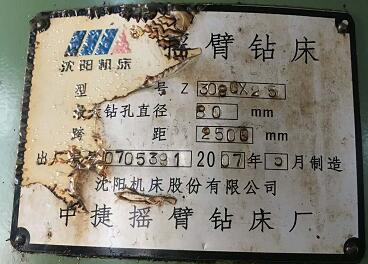 摇臂钻床
沈阳机床
型 号 Z 3080X25
最大钻孔直径 80 mm
跨 距 2500 mm
出厂编号 0705391 2007年 月制造
沈阳机床股份有限公司
中捷摇臂钻床厂